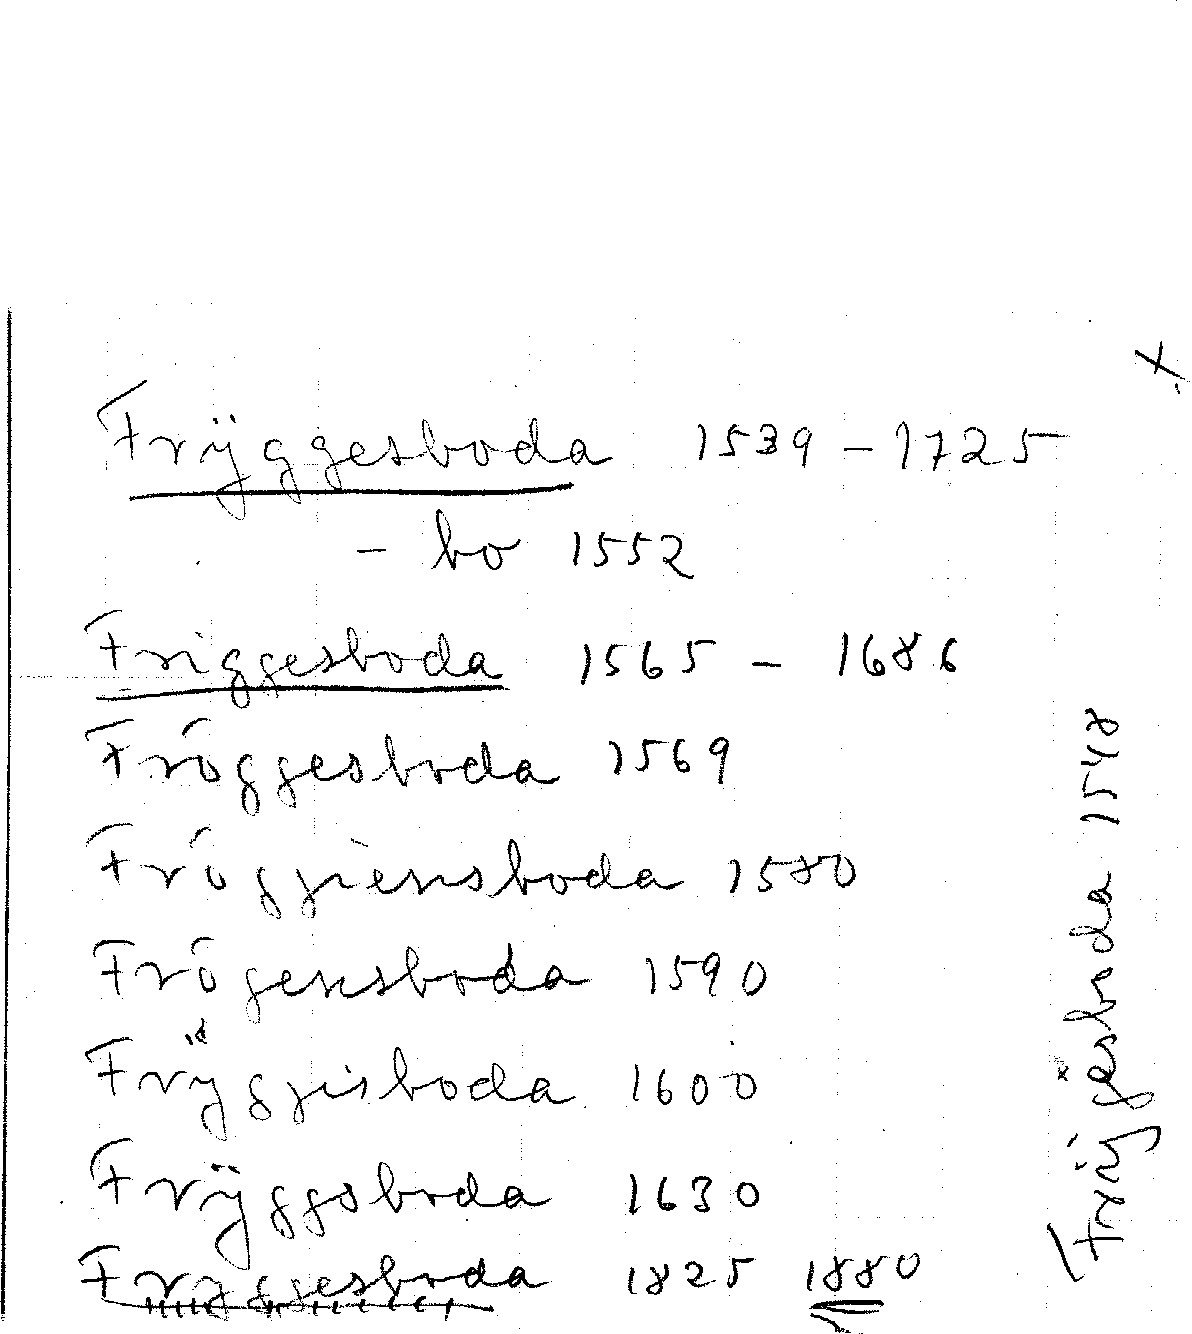 Frÿggesboda 1539 – 1725
– bo 1552
Friggesboda 1565 – 1686
Fróggesboda 1569
Fróggiensboda 1580
Frógensboda 1590
Frÿggisboda 1600
Frÿggsboda 1630
Fryggesboda 1825 1880
1548